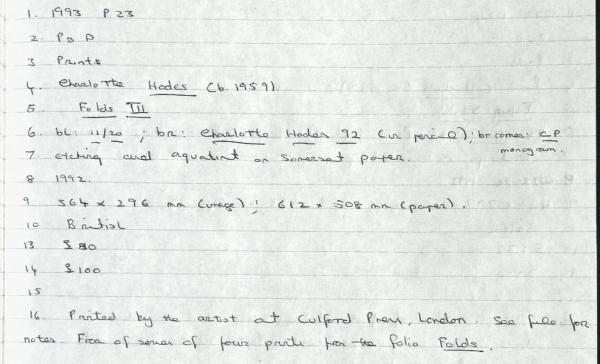 1. 1993 P 23
2. P&D
3 Prints
4. Charlotte Hodes (b. 1959)
5 Folds III
6. bl: 11/20 ; br: Charlotte Hodes 92 (in pencil); br corner: CP
monogram.
7. etching and aquatint on Somerset paper.
8 1992.
9 364 x 296 mm (image) ; 612 x 508 mm (paper).
10 British
13 £80
14 £100
15
16. Printed by the artist at Culford Press, London. See file for
notes. From of series of four prints from the folio Folds.